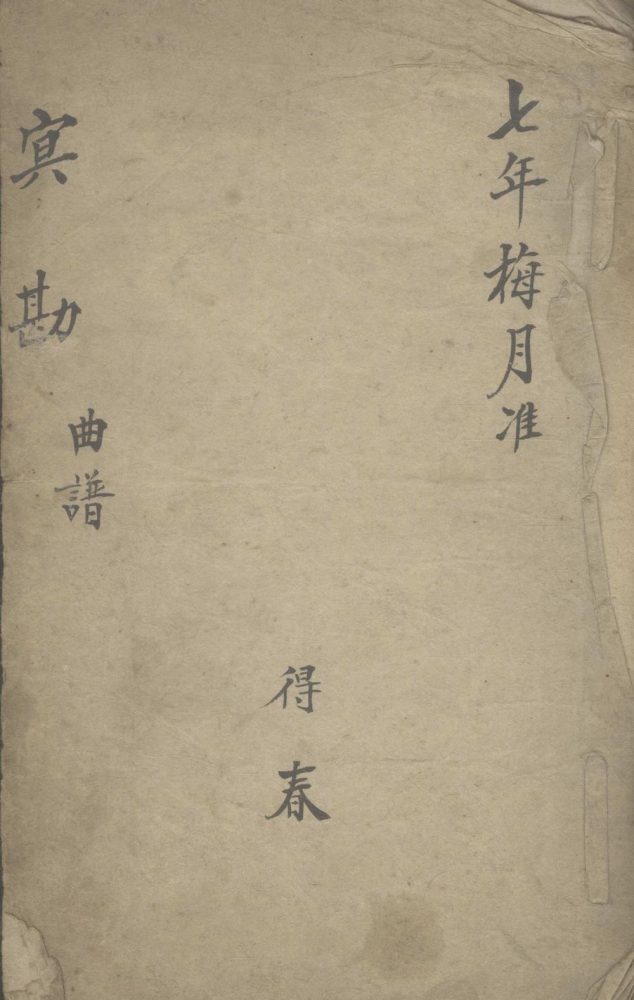 七年梅月准
得春
冥勘
曲譜